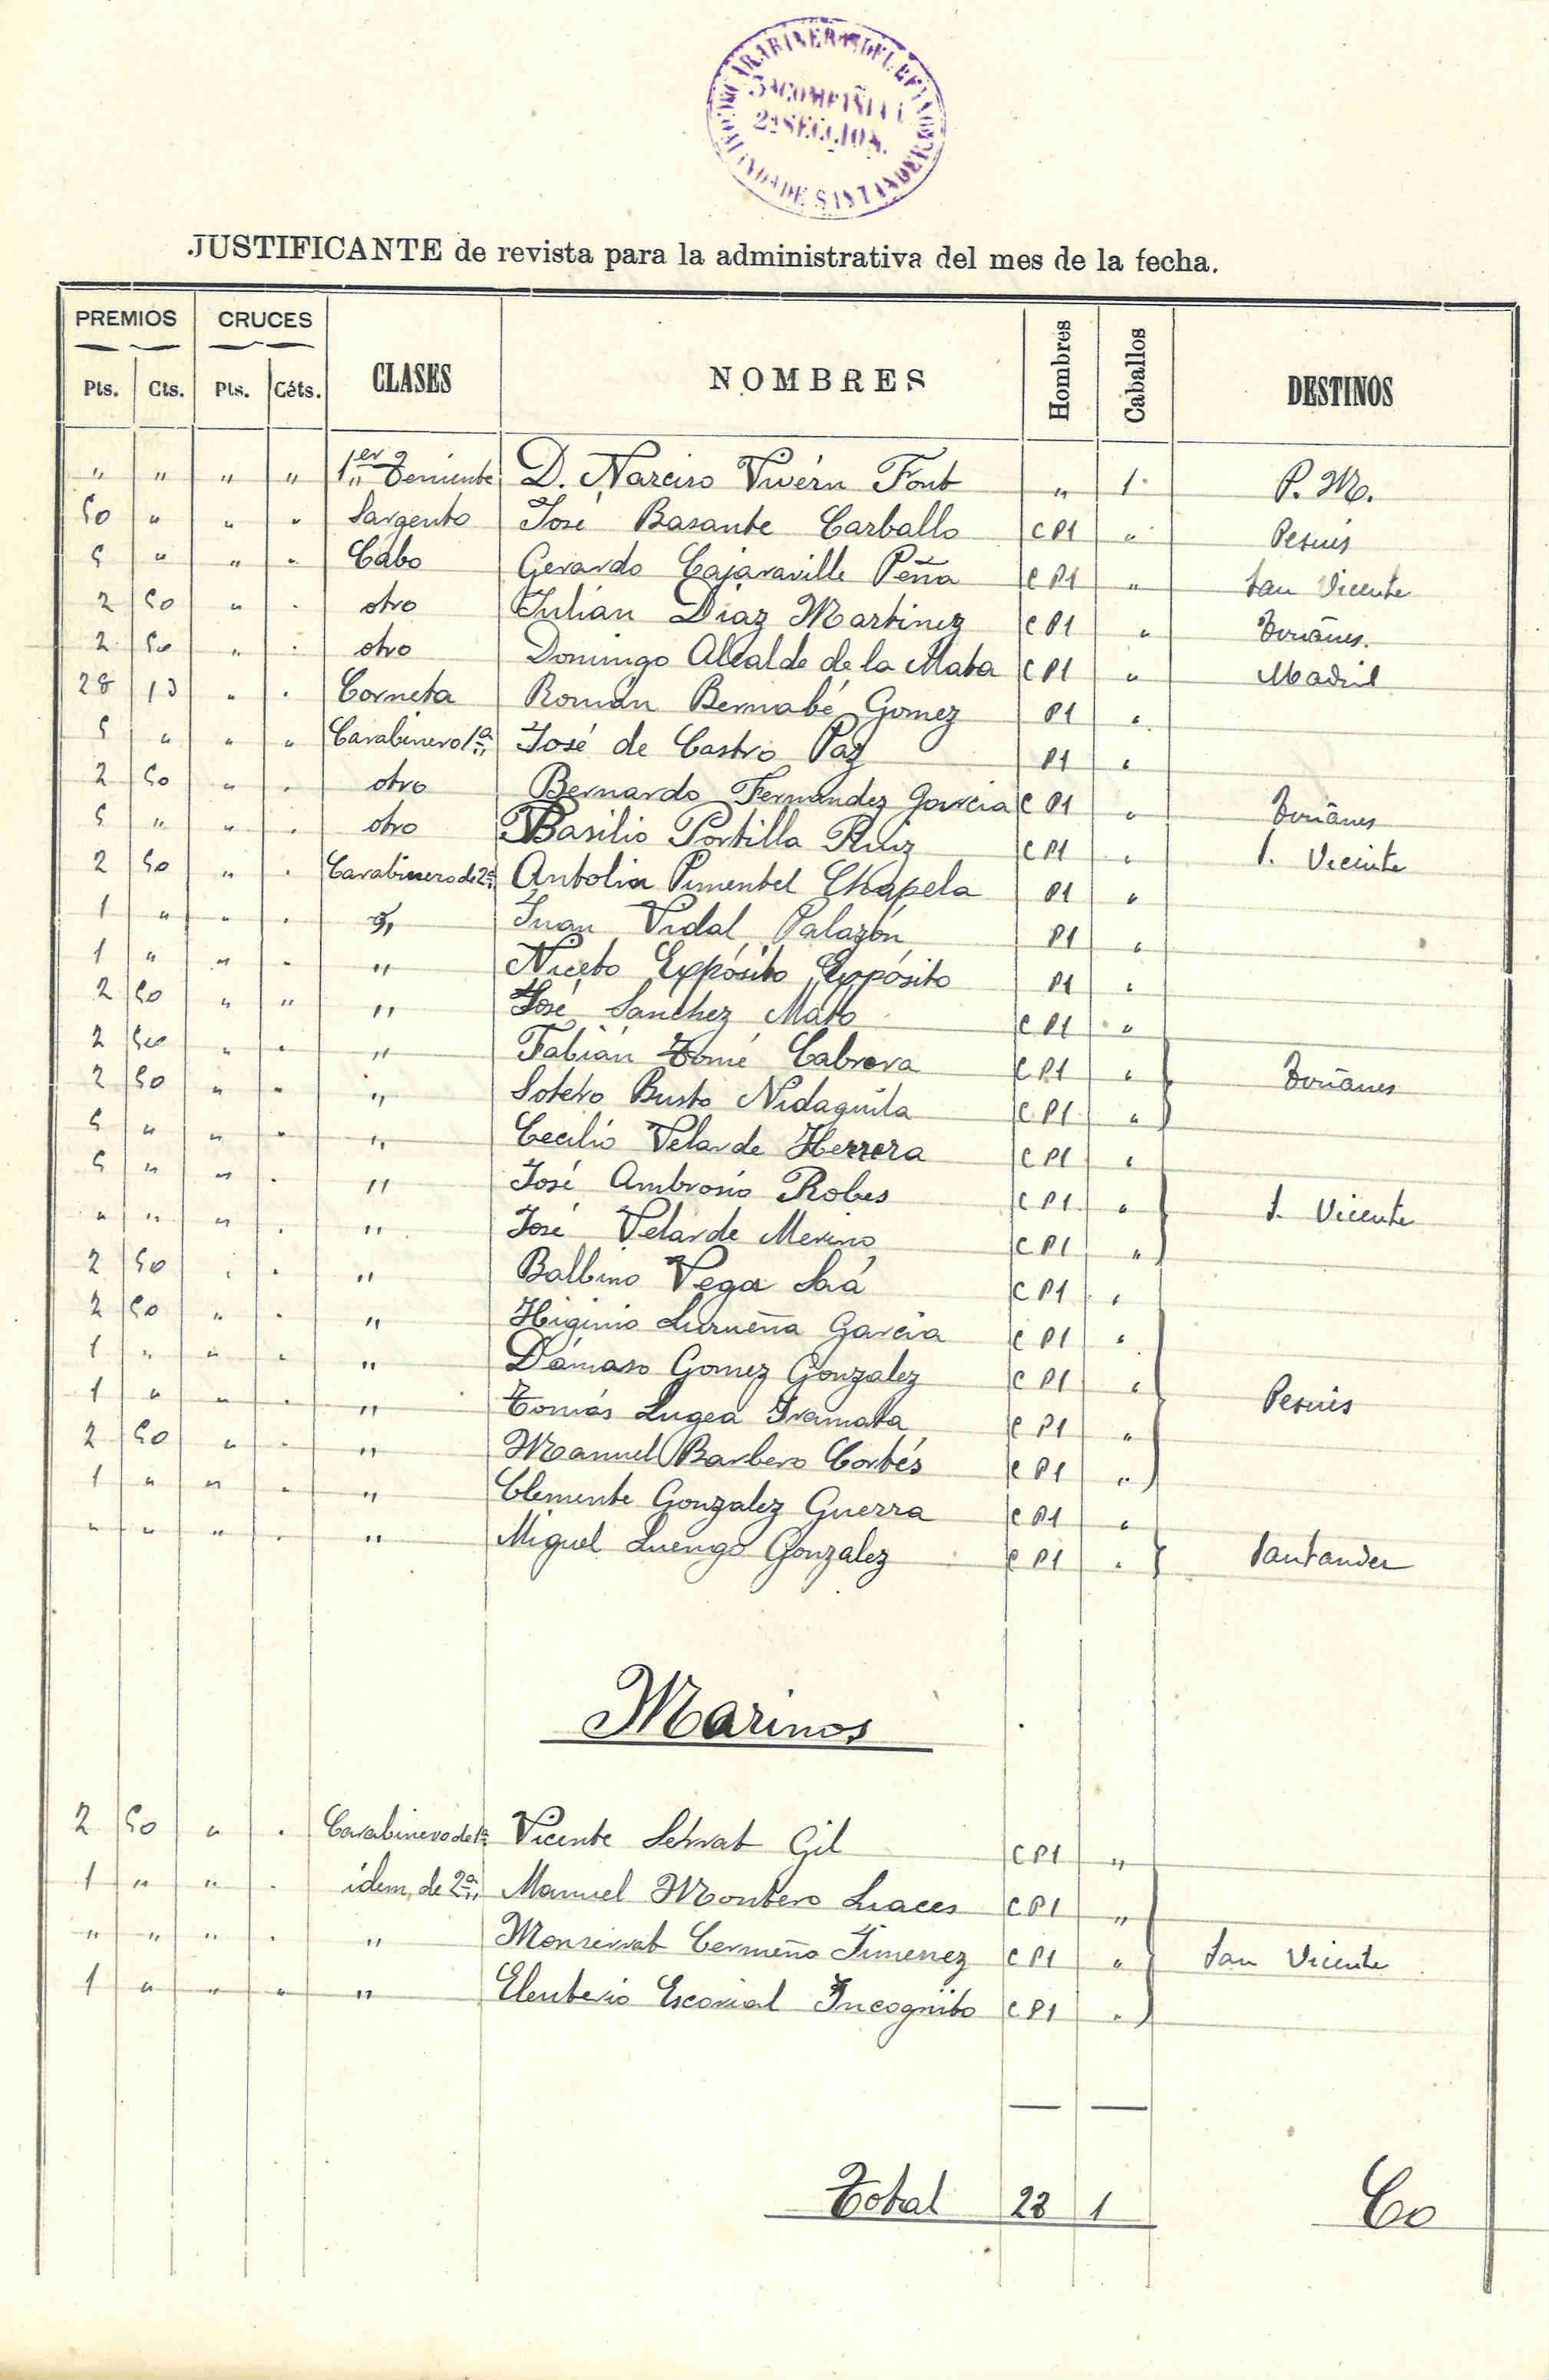 CARABINEROS DEL REYNO
3ª COMPAÑIA
2ª SECCION.
COMANDª DE SANTANDER
JUSTIFICANTE de revista para la administrativa del mes de la fecha.
PREMIOS CRUCES CLASES NOMBRES Hombres Caballos DESTINOS
Pts. Cts. Pts. Céts.
" " " " 1er Teniente D. Narciso Vivern Font " 1 P. M.
50 " " " Sargento José Basante Carballo C P1 " Pesués
5 " " " Cabo Gerardo Cajaraville Peña C P1 " San Vicente
2 50 " " otro Julián Diaz Martinez C P1 "
2 50 " " otro Domingo Alcalde de la Mata C P1 " Madrid
28 13 " " Corneta Román Bernabé Gomez P1 "
5 " " " Carabinero 1ª José de Castro Paz P1 "
2 50 " " otro Bernardo Fernandez Garcia C P1 "
5 " " " otro Basilio Portilla Ruiz C P1 " S. Vicente
2 50 " " Carabinero de 2ª Antolin Pimentel Chapela P1 "
1 " " " " Juan Vidal Palazón P1 "
1 " " " " Niceto Expósito Expósito P1 "
2 50 " " " José Sanchez Mato C P1 "
2 50 " " " Fabián Tomé Cabrera C P1 "
2 50 " " " Sotero Busto Nidaguila C P1 "
5 " " " " Cecilio Velarde Herrera C P1 "
5 " " " " José Ambrosio Robes C P1 " S. Vicente
" " " " " José Velarde Merino C P1 "
2 50 " " " Balbino Vega Saá C P1 "
2 50 " " " Higinio Lurueña Garcia C P1 "
1 " " " " Dámaso Gomez Gonzalez C P1 " Pesués
1 " " " " Tomás Lugea Iramata C P1 "
2 50 " " " Manuel Barbero Cortés C P1 "
1 " " " " Clemente Gonzalez Guerra C P1 "
" " " " " Miguel Luengo Gonzalez C P1 " Santander
Marinos
2 50 " " Carabinero de 1ª Vicente Servat Gil C P1 "
1 " " " idem de 2ª Manuel Montero Luaces C P1 "
" " " " " Monserrat Cermeño Jimenez C P1 " San Vicente
1 " " " " Eleuterio Escorial Incognito C P1 "
Total 28 1 Co